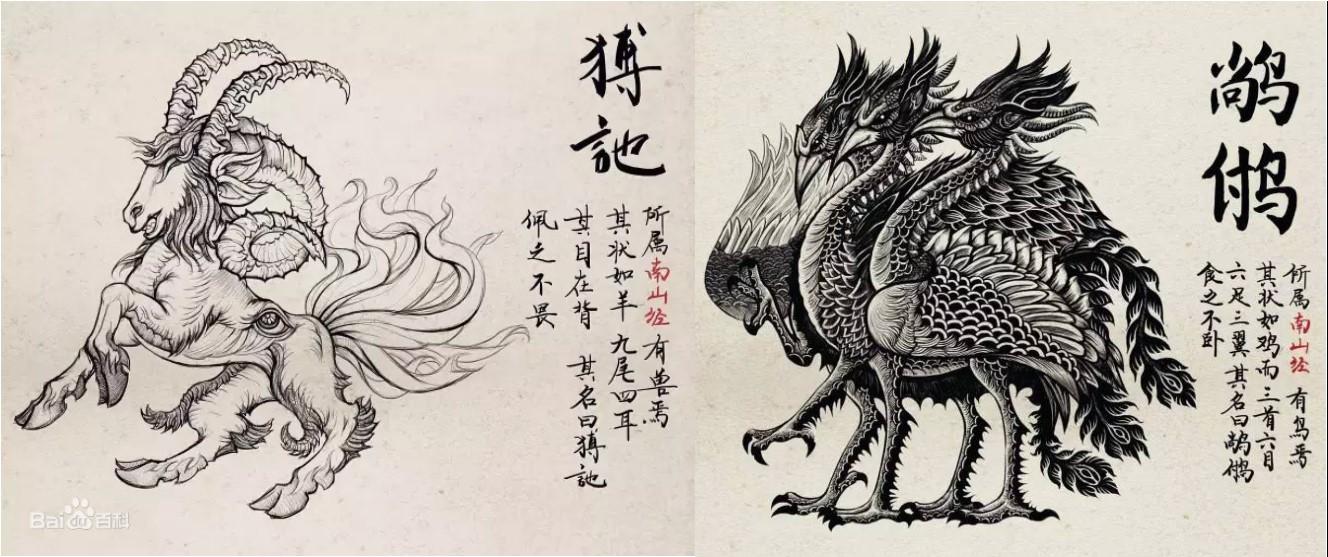 猼
訑
所属南山经 有兽焉
其状如羊 九尾四耳
其目在背 其名曰猼訑
佩之不畏
Bai百科
𪁺
𩿧
所属南山经 有鸟焉
其状如鸡而三首六目
六足三翼 其名曰
食之不卧